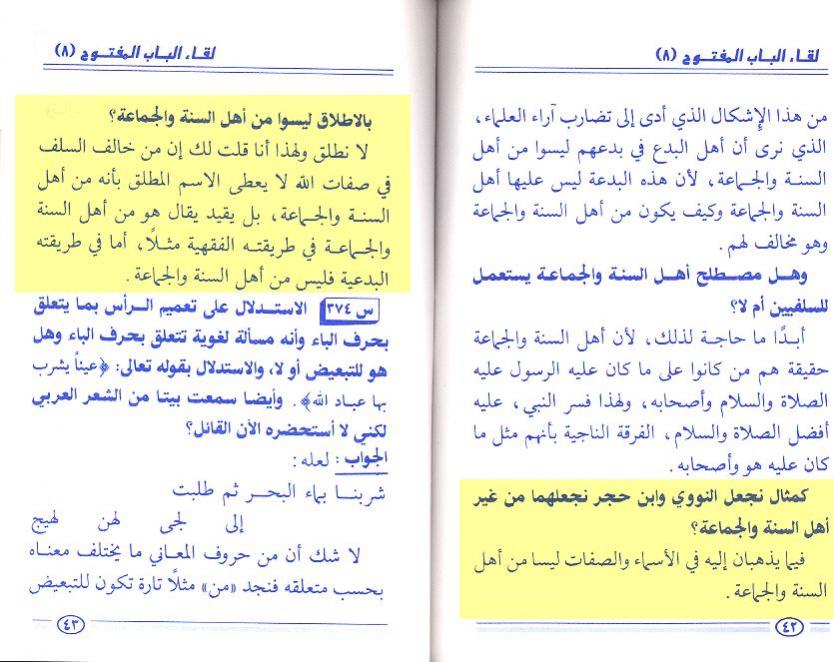 لقـاء البـاب المفتــوح (٨)
من هذا الإشكال الذي أدى إلى تضارب آراء العلماء،
الذي نرى أن أهل البدع في بدعهم ليسوا من أهل
السنـة والجـماعة، لأن هذه البدعة ليس عليها أهل
السنة والجماعة وكيف يكون من أهل السنة والجماعة
وهو مخالف لهم.
وهـل مصـطلح أهـل السنـة والجماعـة يستعمل
للسلفيين أم لا؟
أبـدًا ما حاجـة لذلك، لأن أهل السنة والجماعة
حقيقة هم من كانوا على ما كان عليه الرسول عليه
الصلاة والسلام وأصحابه، ولهذا فسر النبي، عليه
أفضل الصلاة والسلام، الفرقة الناجية بأنهم مثل ما
كان عليه هو وأصحابه.
كمثال نجعل النووي وابن حجر نجعلهما من غير
أهل السنة والجماعة؟
فيما يذهبان إليه في الأسماء والصفات ليسا من أهل
السنة والجماعة.
٤٢
لقـاء البـاب المفتــوح (٨)
بالاطلاق ليسوا من أهل السنة والجماعة؟
لا نطلق ولهذا أنا قلت لك إن من خالف السلف
في صفات الله لا يعطى الاسم المطلق بأنه من أهل
السنـة والجـماعة، بل يقيد يقال هو من أهل السنة
والجـماعـة في طريقتـه الفقهية مثـلًا، أما في طريقته
البدعية فليس من أهل السنة والجماعة.
س ٣٧٤ الاستـدلال على تعميم الـرأس بمـا يتعلق
بحرف الباء وأنه مسألة لغوية تتعلق بحرف الباء وهل
هو للتبعيض أو لا، والاستدلال بقوله تعالى: ﴿عيناً يشرب
بها عبـاد الله﴾. وأيضـا سمعت بيتـا من الشعر العربي
لكني لا أستحضره الآن القائل؟
الجواب: لعله:
شربنـا بـماء البحـر ثم طلبت
إلى لجى لهن لهيج
لا شك أن من حروف المعاني ما يختلف معناه
بحسب متعلقه فنجد «من» مثلًا تارة تكون للتبعيض
٤٣